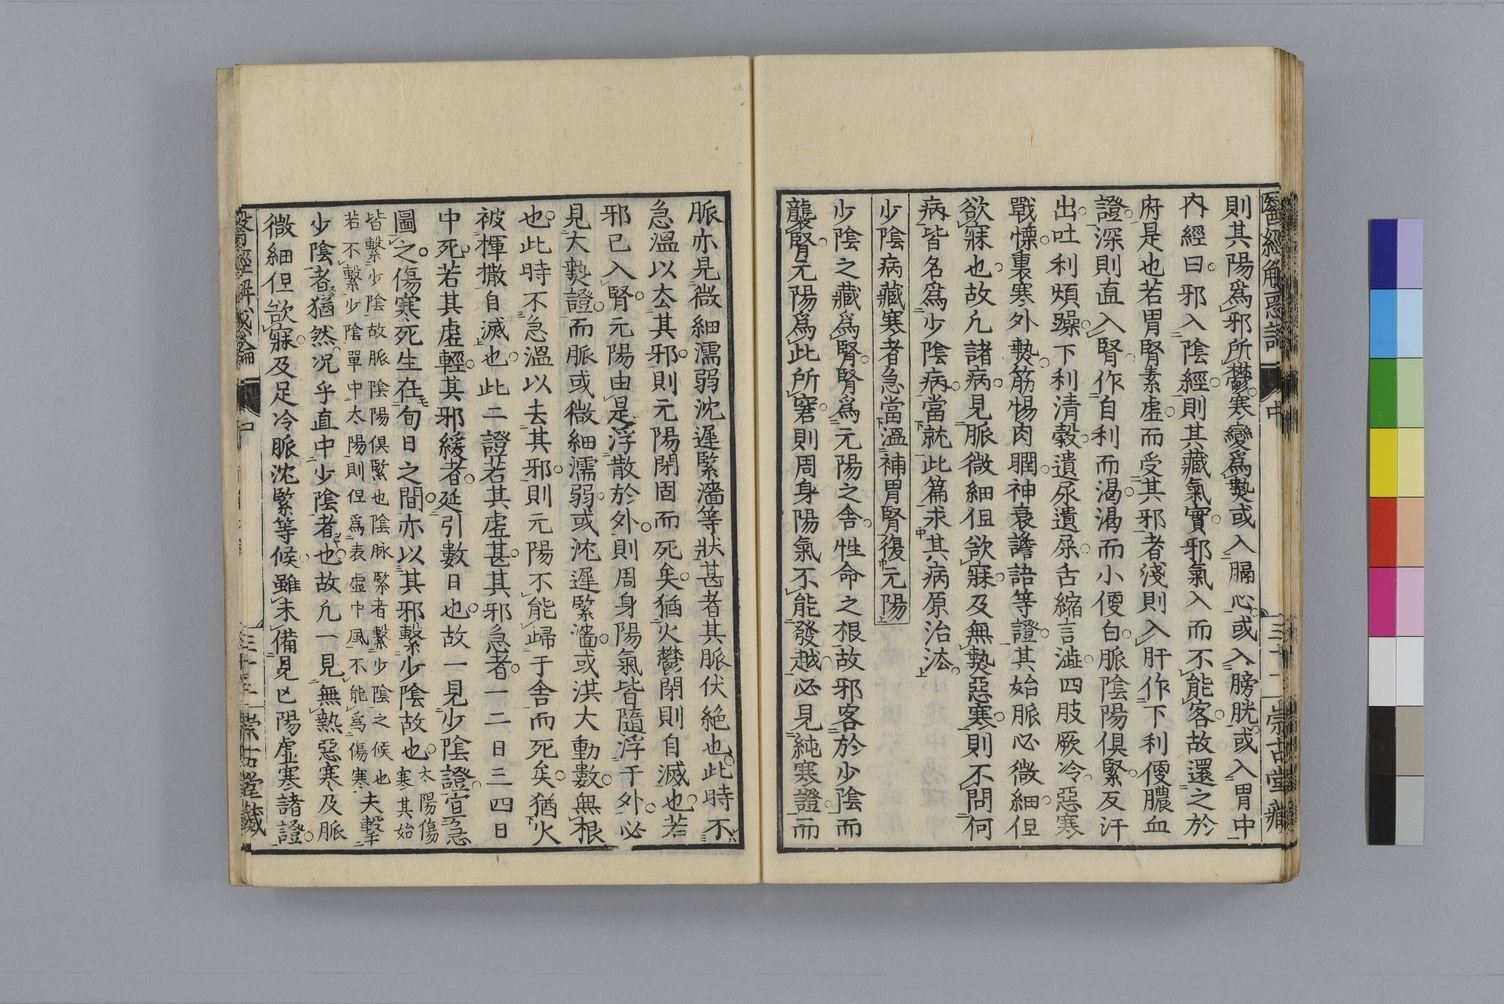 醫經解惑論
中
三十一
崇古堂藏
則其陽爲邪所鬱寒變爲熱或入膈心或入膀胱或入胃中
內經曰邪入陰經則其藏氣實邪氣入而不能客故還之於
府是也若胃腎素虛而受其邪者淺則入肝作下利便膿血
證深則直入腎作自利而渴渴而小便白脈陰陽俱緊反汗
出吐利煩躁下利清穀遺尿遺屎舌縮言澁四肢厥冷惡寒
戰慄裏寒外熱筋惕肉瞤神衰譫語等證其始脈必微細但
欲寐也故凡諸病見脈微細但欲寐及無熱惡寒則不問何
病皆名爲少陰病當就此篇求其病原治法
少陰病藏寒者急當溫補胃腎復元陽
少陰之藏爲腎腎爲元陽之舎性命之根故邪客於少陰而
襲腎元陽爲此所窘則周身陽氣不能發越必見純寒證而
脈亦見微細濡弱沈遲緊濇等狀甚者其脈伏絶也此時不
急溫以去其邪則元陽閉固而死矣猶火鬱閉則自滅也若
邪已入腎元陽由是浮散於外則周身陽氣皆隨浮于外必
見大熱證而脈或微細濡弱或沈遲緊濇或洪大動數無根
也此時不急溫以去其邪則元陽不能歸于舎而死矣猶火
被揮撒自滅也此二證若其虛甚其邪急者一二日三四日
中死若其虛輕其邪緩者延引數日也故一見少陰證宜急
圖之傷寒死生在旬日之間亦以其邪繫少陰故也太陽傷寒其始
皆繫少陰故脈陰陽俱緊也陰脈緊者繫少陰之候也夫擊
若不繫少陰單中太陽則但爲表虛中風不能爲傷寒
少陰者猶然況乎直中少陰者也故凡一見無熱惡寒及脈
微細但欲寐及足冷脈沈緊等候雖未備見亡陽虛寒諸證
醫經解惑論
中
崇古堂藏